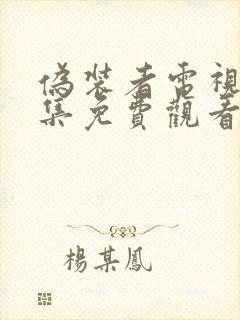 偽裝者電視
集免費觀看
楊某鳳